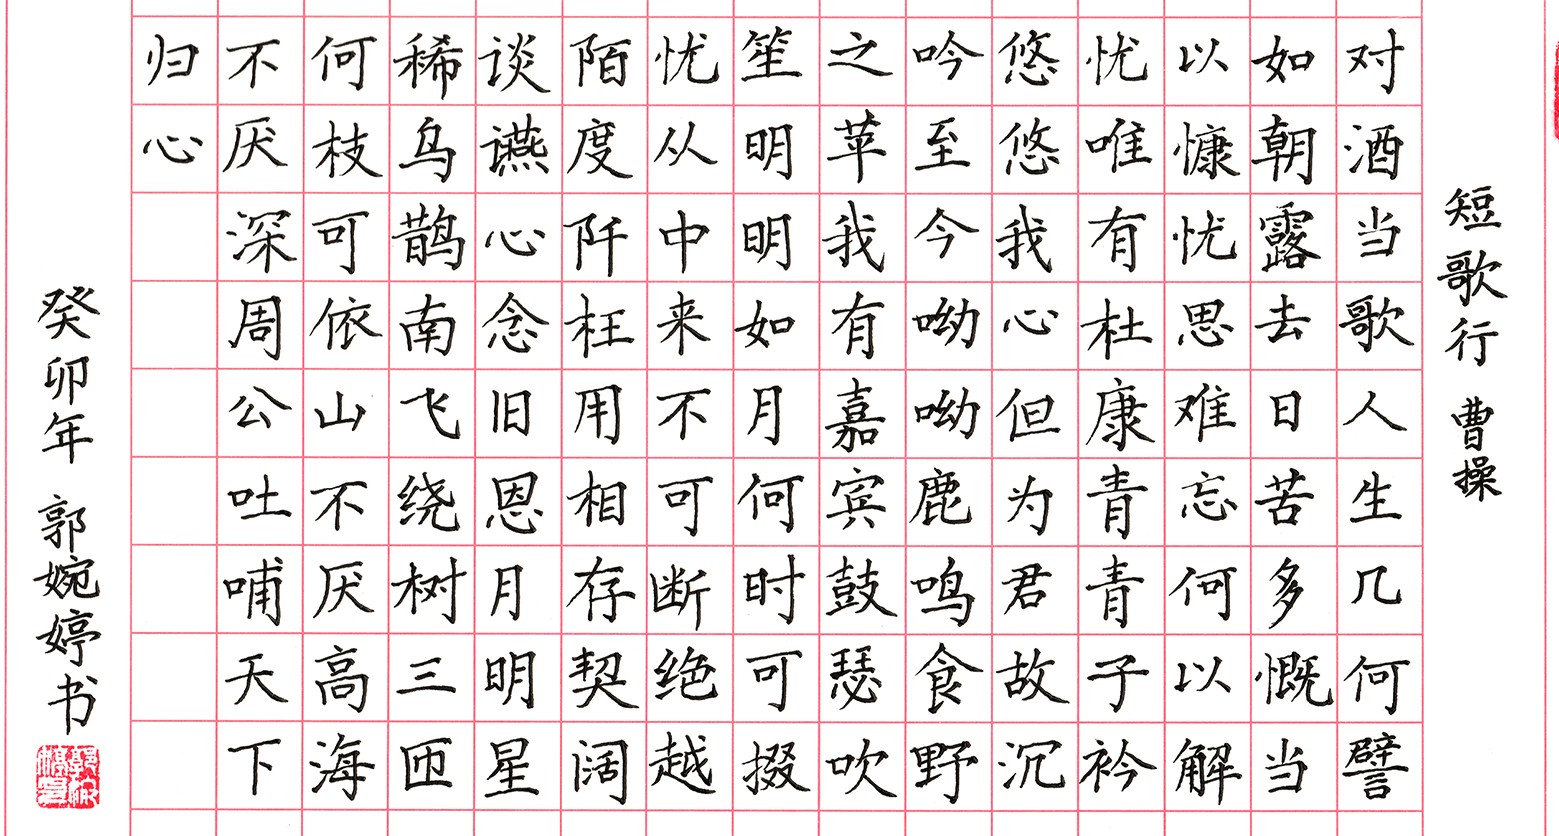 短歌行 曹操
对酒当歌人生几何譬
如朝露去日苦多慨当
以慷忧思难忘何以解
忧唯有杜康青青子衿
悠悠我心但为君故沉
吟至今呦呦鹿鸣食野
之苹我有嘉宾鼓瑟吹
笙明明如月何时可掇
忧从中来不可断绝越
陌度阡枉用相存契阔
谈䜩心念旧恩月明星
稀乌鹊南飞绕树三匝
何枝可依山不厌高海
不厌深周公吐哺天下
归心
癸卯年 郭婉婷书